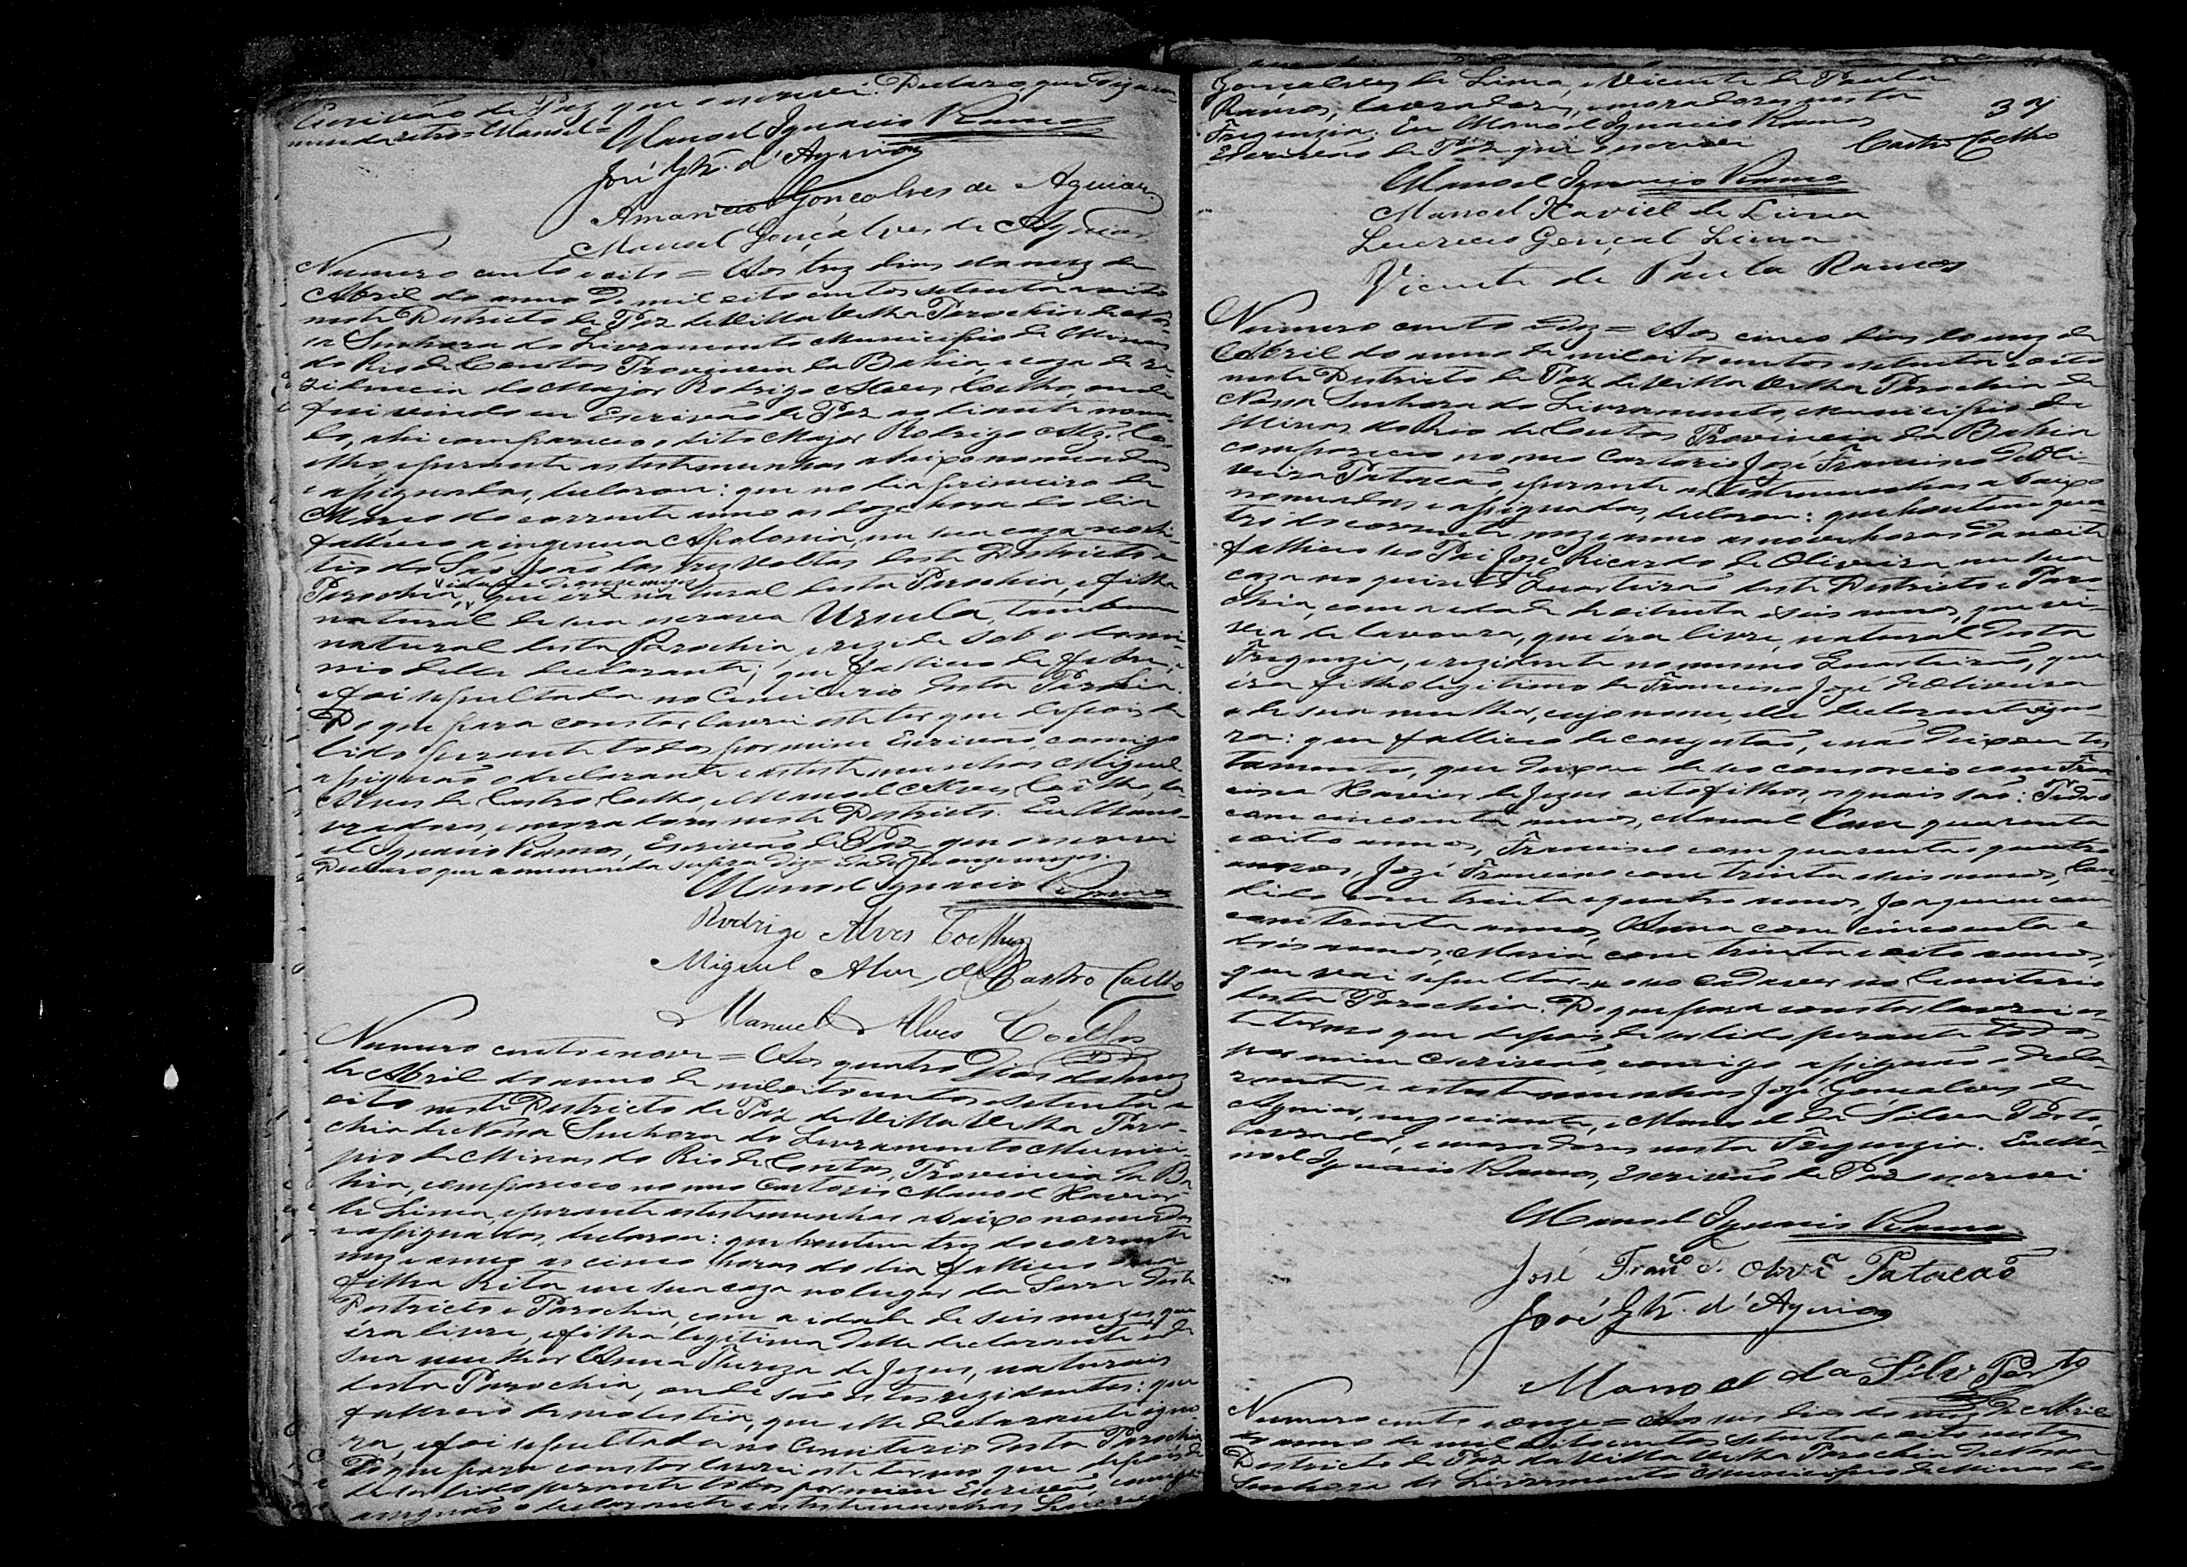 Escrivão de Paz que escrevi. Declaro que diz a e-
menda retro = Manoel =
Manoel Ignacio Ramos
José Glz. d'Aguiar
Amancio Gonçalves de Aguiar
Manoel Gonçalves de Aguiar
Numero cento e oito = Aos trez dias do mez de
Abril do anno de mil oito centos setenta e oito
neste Districto de Paz de Villa Velha Parochia de Nos-
sa Senhora do Livramento Municipio de Minas
do Rio de Contas Provincia da Bahia, e caza de re-
zidencia do Major Rodrigo Alves Coelho, onde
fui vindo eu Escrivão de Paz ao diante nomea-
do, ahi compareceo o dito Major Rodrigo Alz. Co-
elho, e perante as testemunhas abaixo nomeadas
e assignadas, declarou: que no dia primeiro de
Março do corrente anno as doze hora do dia
falleceo a ingenua Apolonia, em sua caza no si-
tio do São João das trez Voltas deste Districto e
Parochia, idade de onze mezes, que era natural desta Parochia, e filha
natural de sua escrava Ursula, tambem
natural desta Parochia, e rezide sob o domi-
nio delle declarante; que falleceo de febre, e
foi sepultada no Cemiterio desta Parochia.
Do que para constar lavrei este ter que depois de
lido perante todos por mim Escrivão, comigo
assignão o declarante e as testemunhas Miguel
Alves de Castro Coelho, e Manoel Alves Coelho, la-
vradores, e moradores neste Districto. Eu Mano-
el Ignacio Ramos, Escrivão de Paz que escrevi
Declaro que a emmenda supra diz = idade de onze mezes.
Manoel Ignacio Ramos
Rodrigo Alves Coelho
Miguel Alves de Castro Coelho
Manuel Alves Coelho
Numero cento e nove = Aos quatro dias do mez
de Abril do anno de mil oito centos setenta e
oito neste Districto de Paz de Villa Velha Paro-
chia de Nossa Senhora do Livramento Munici-
pio de Minas do Rio de Contas, Provincia da Ba-
hia, compareceo no meo Cartorio Manoel Xavier
de Lima, e perante as testemunhas abaixo nomeadas
e assignadas, declarou: que hontem trez do corrente
mez e anno as cinco horas do dia falleceo sua
filha Rita em sua caza no lugar da Serra deste
Districto e Parochia, com a idade de seis mezes, que
éra livre, e filha legitima delle declarante e de
sua mulher Anna Thereza de Jezus, naturais
desta Parochia, onde são estes rezidentes: que
falleceo de molestia, que elle declarante igno-
ra, e foi sepultada no Cemiterio desta Parochia
Do que para constar lavrei este termo que depois
de ser lido perante todos por mim Escrivão, comigo
assignão o declarante e as testemunhas
Gonçalves de Lima, e Vicente de Paula
Ramos, lavradores, e moradores nesta
Freguezia. Eu Manoel Ignacio Ramos
Escrivão de Paz que escrevi
37
Castro Coelho
Manoel Ignacio Ramos
Manoel Xaviel de Lima
Lucrecio Gonçal Lima
Vicente de Paula Ramos
Numero cento e dez = Aos cinco dias do mez de
Abril do anno de mil oito centos e setenta e oito
neste Districto de Paz de Villa Velha Parochia de
Nossa Senhora do Livramento, Municipio de
Minas do Rio de Contas Provincia da Bahia
compareceo no meo Cartorio José Francisco de Oli-
veira Patacão, e perante as testemunhas abaixo
nomeadas e assignadas, declarou: que hontem qua-
tro do corrente mez e anno as nove horas da noite
falleceo seo Pai José Ricardo de Oliveira em sua
caza no quinto Quarteirão deste Districto e Paro-
chia, com a idade de oitenta e seis annos, que vi-
via de lavoura, que éra livre, natural desta
Freguezia, e rezidente no mesmo Quarteirão, que
éra filho legitimo de Francisco José de Oliveira
e de sua mulher, cujo nome, elle declarante igno-
ra: que falleceo de congestão, e não deixou tes-
tamento, que deixou de seo consorcio com Fran-
cisca Xavier de Jezus oito filhos, os quais são: Pedro
com cincoenta annos, Manoel com quarenta
e oito annos, Francisco com quarenta e quatro
annos, José Francisco com trinta e seis annos, Can-
dido com trinta e quatro annos, Joaquim com
com trinta annos, Anna com cincoenta e
dois annos, Maria com trinta e oito annos,
que vai sepultar-se seo cadaver no Cemiterio
desta Parochia. Do que para constar lavrei es-
te termo que depois de ser lido perante todos
por mim Escrivão, comigo assignão o decla-
rante e as testemunhas José Gonçalves de
Aguiar, negociante, e Manoel da Silva Porto,
lavrador, e moradores nesta Freguezia. Eu Ma-
noel Ignacio Ramos, Escrivão de Paz escrevi
Manoel Ignacio Ramos
José Franco. d. Olivra. Patacaõ
José Glz. d'Aguiar
Manoel da Silv Porto
Numero cento e onze = Aos seis dias do mez de Abril
do anno de mil oito centos setenta e oito neste
Districto de Paz da Villa Velha Parochia de Nossa
Senhora do Livramento Municipio de Minas do